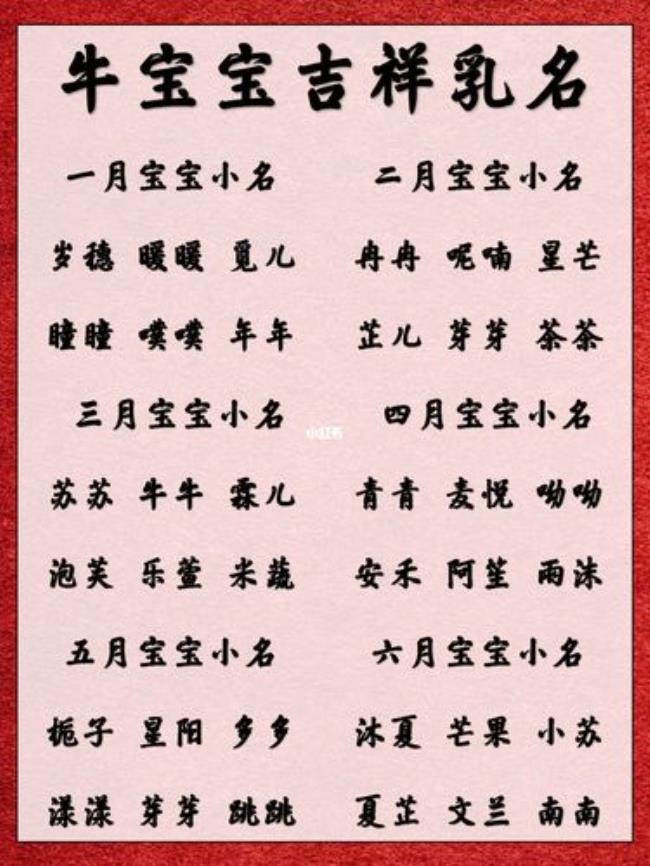 牛宝宝吉祥乳名
一月宝宝小名 二月宝宝小名
岁穗 暖暖 觅儿 冉冉 呢喃 星芒
瞳瞳 噗噗 年年 芷儿 芽芽 茶茶
三月宝宝小名 四月宝宝小名
小红书
苏苏 牛牛 霖儿 青青 麦悦 呦呦
泡芙 乐萱 米蔬 安禾 阿笙 雨沫
五月宝宝小名 六月宝宝小名
栀子 星阳 多多 沐夏 芒果 小苏
漾漾 芽芽 跳跳 夏芷 文兰 南南